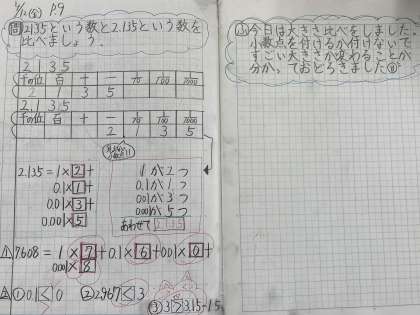 6/12(金) P.9
問 2135という数と2.135という数を
比べましょう。
2135
千の位 百 十 一 1/10 1/100 1/1000
2 1 3 5
2.135
千の位 百 十 一 1/10 1/100 1/1000
2 1 3 5
2.135=1×2+
0.1×1+
0.01×3+
0.001×5
1が2つ
0.1が1つ
0.01が3つ
0.001が5つ
あわせて2.135
7.608=1×7+0.1×6+0.01×0+
0.001×8
①0.1<0
②2.967<3
③3>3.15-1.5
ふ 今日は大きさ比べをしました。
小数点を付けるか付けないで
すごい大きさが変わることが
分かっておどろきました